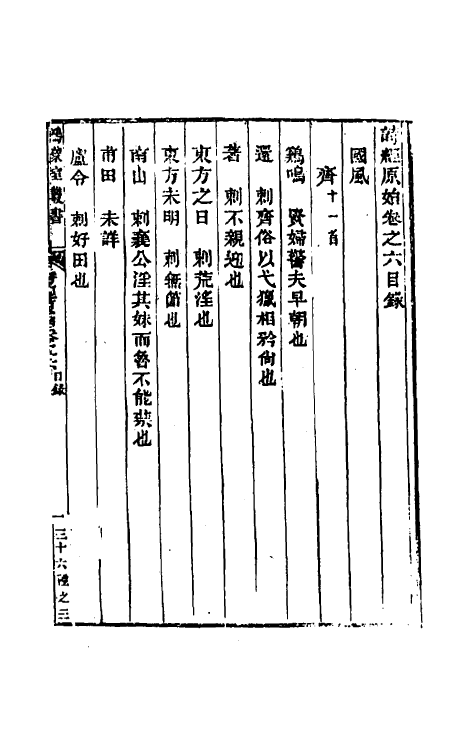 詩經原始卷之六目錄
國風
齊十一首
鷄鳴　賢婦警夫早朝也
還　刺齊俗以弋獵相矜尙也
著　刺不親迎也
東方之日　刺荒淫也
東方未明　刺無節也
南山　刺襄公淫其妹而魯不能禁也
甫田　未詳
盧令　刺好田也
鴻濛室叢書
詩經原始卷之六目錄
一
三十六種之三